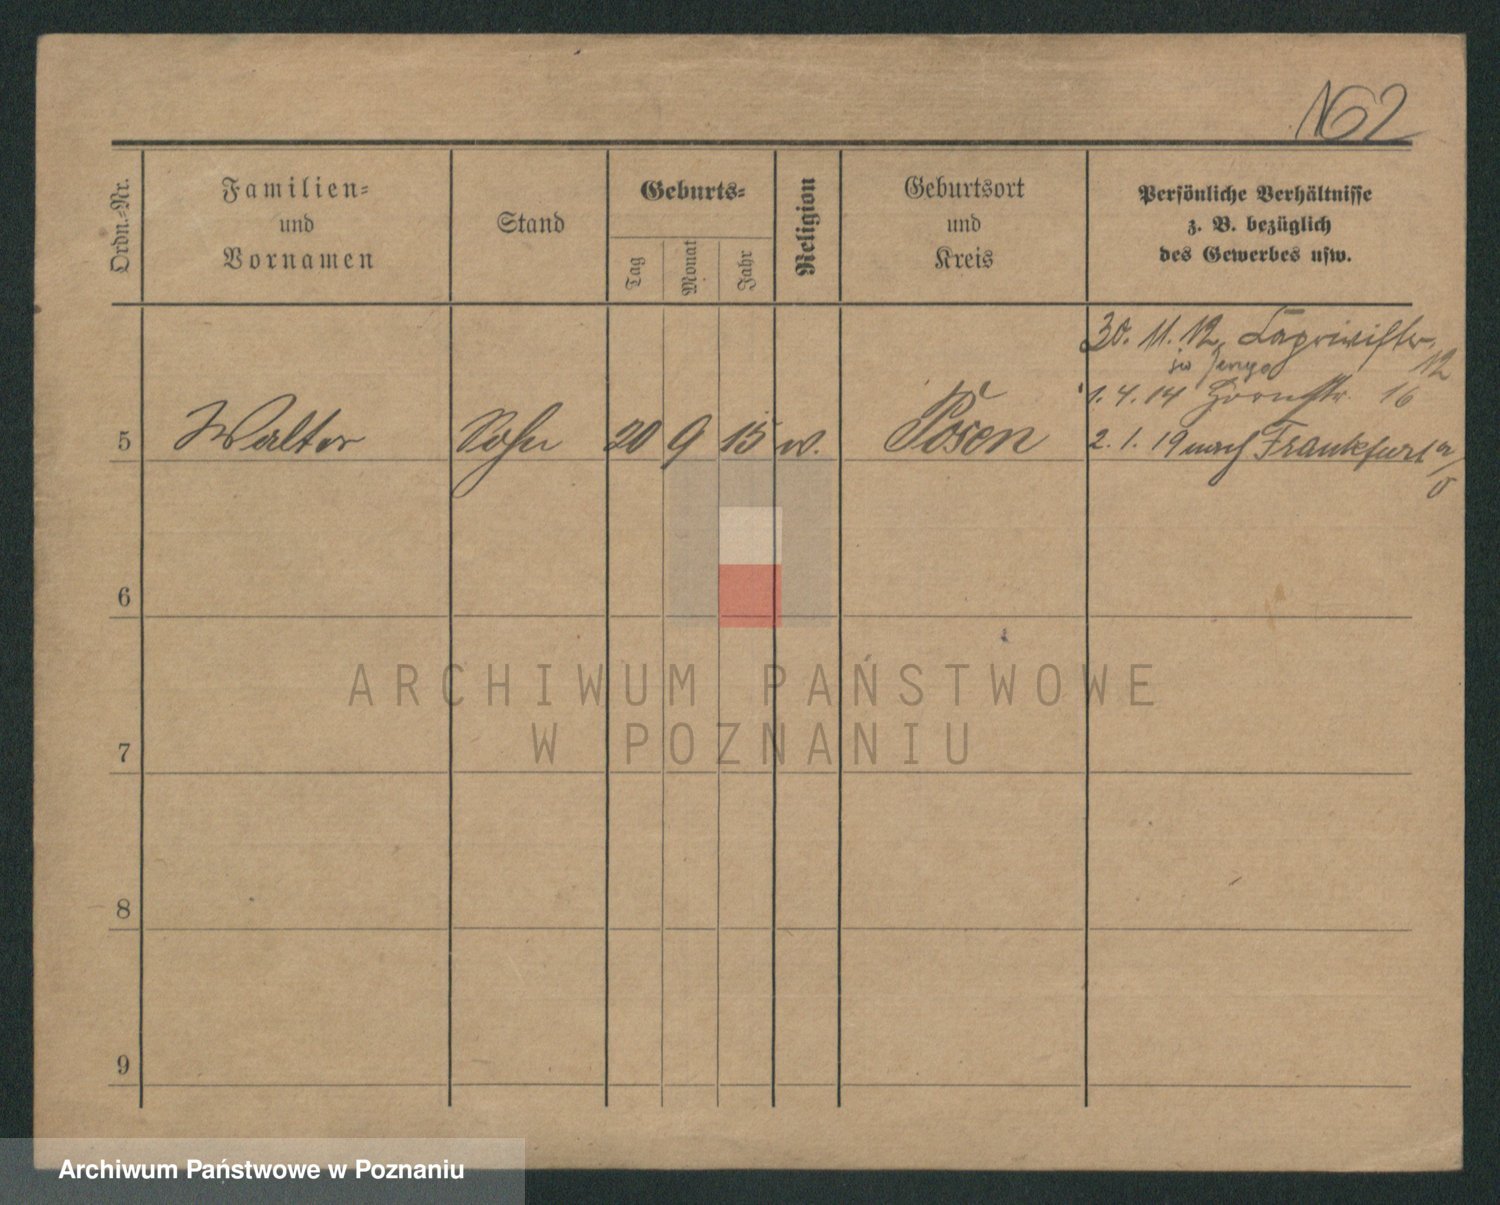 162
Ordn.-Nr.
Familien-
und
Vornamen
Stand
Geburts-
Tag
Monat
Jahr
Religion
Geburtsort
und
Kreis
Persönliche Verhältnisse
z. B. bezüglich
des Gewerbes usw.
30. 11. 12
12
1. 4. 14 Hornstr. 16
5 Walter Sohn 20 9 15 w. Posen 2. 1. 19 nach Frankfurt a/O
6
ARCHIWUM PAŃSTWOWE
W POZNANIU
7
8
9
Archiwum Państwowe w Poznaniu